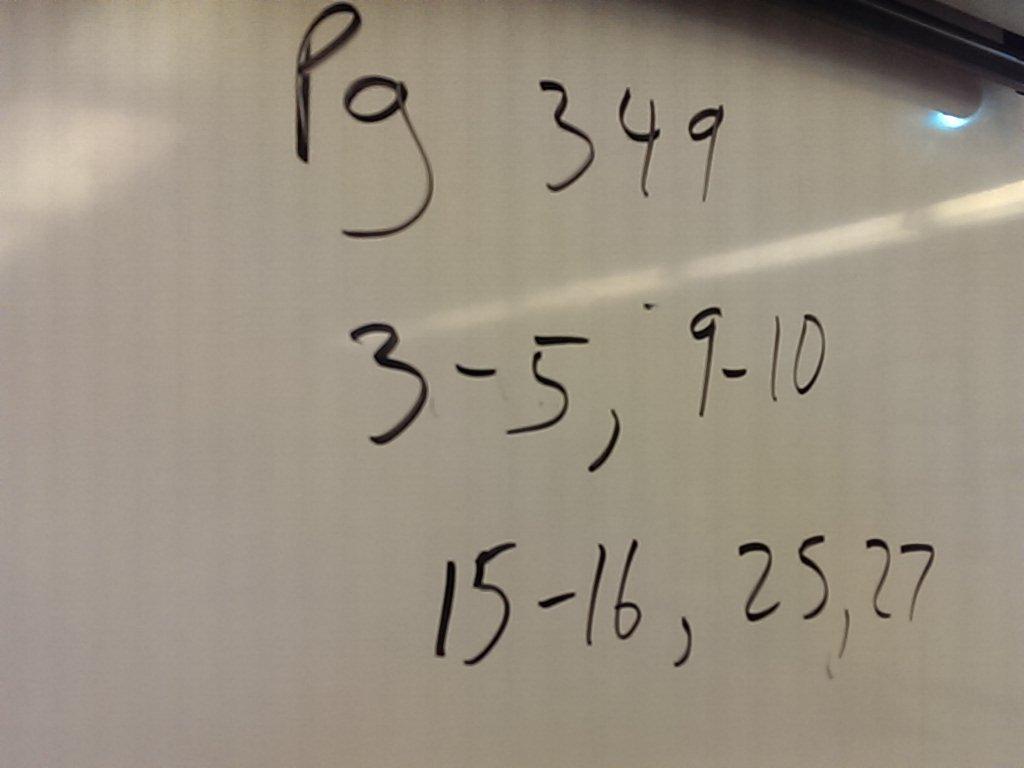 Pg 349
3-5, 9-10
15-16, 25,27